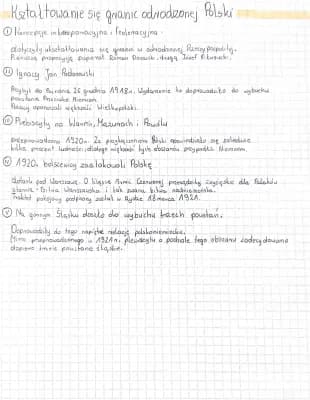 Kształtowanie się granic odrodzonej Polski
I Koncepcje inkorporacyjna i federacyjna
dotyczyły ukształtowania się granic w odrodzonej Rzeczypospolitej.
Pierwszą proponuję popierał Roman Dmowski, drugą Józef Piłsudski.
II Ignacy Jan Paderewski
Przybył do Poznania 26 grudnia 1918r. Wydarzenie to doprowadziło do wybuchu
powstania Poznania Niemcom.
Polacy opanowali większość Wielkopolski.
III Plebiscyty na Warmii, Mazurach i Powiślu
przeprowadzono 1920r. Za przyłączeniem Polski opowiedziało się zaledwie
kilka procent ludności, dlatego większość tych obszarów przypadła Niemcom.
IV 1920r. bolszewicy zaatakowali Polskę
dotarli pod Warszawę. O klęsce Armii Czerwonej przesądziły zwycięskie dla Polaków
starcia - Bitwa Warszawska i tak zwana bitwa nadniemeńska.
Traktat pokojowy podpisany został w Rydze 18 marca 1921.
V Na górnym Śląsku doszło do wybuchu trzech powstań.
Doprowadziły do tego napięte relacje polskoniemieckie.
Mimo przeprowadzonego w 1921r. plebiscytu o podziale tego obszaru zadecydowano
dopiero trzecie powstanie śląskie.